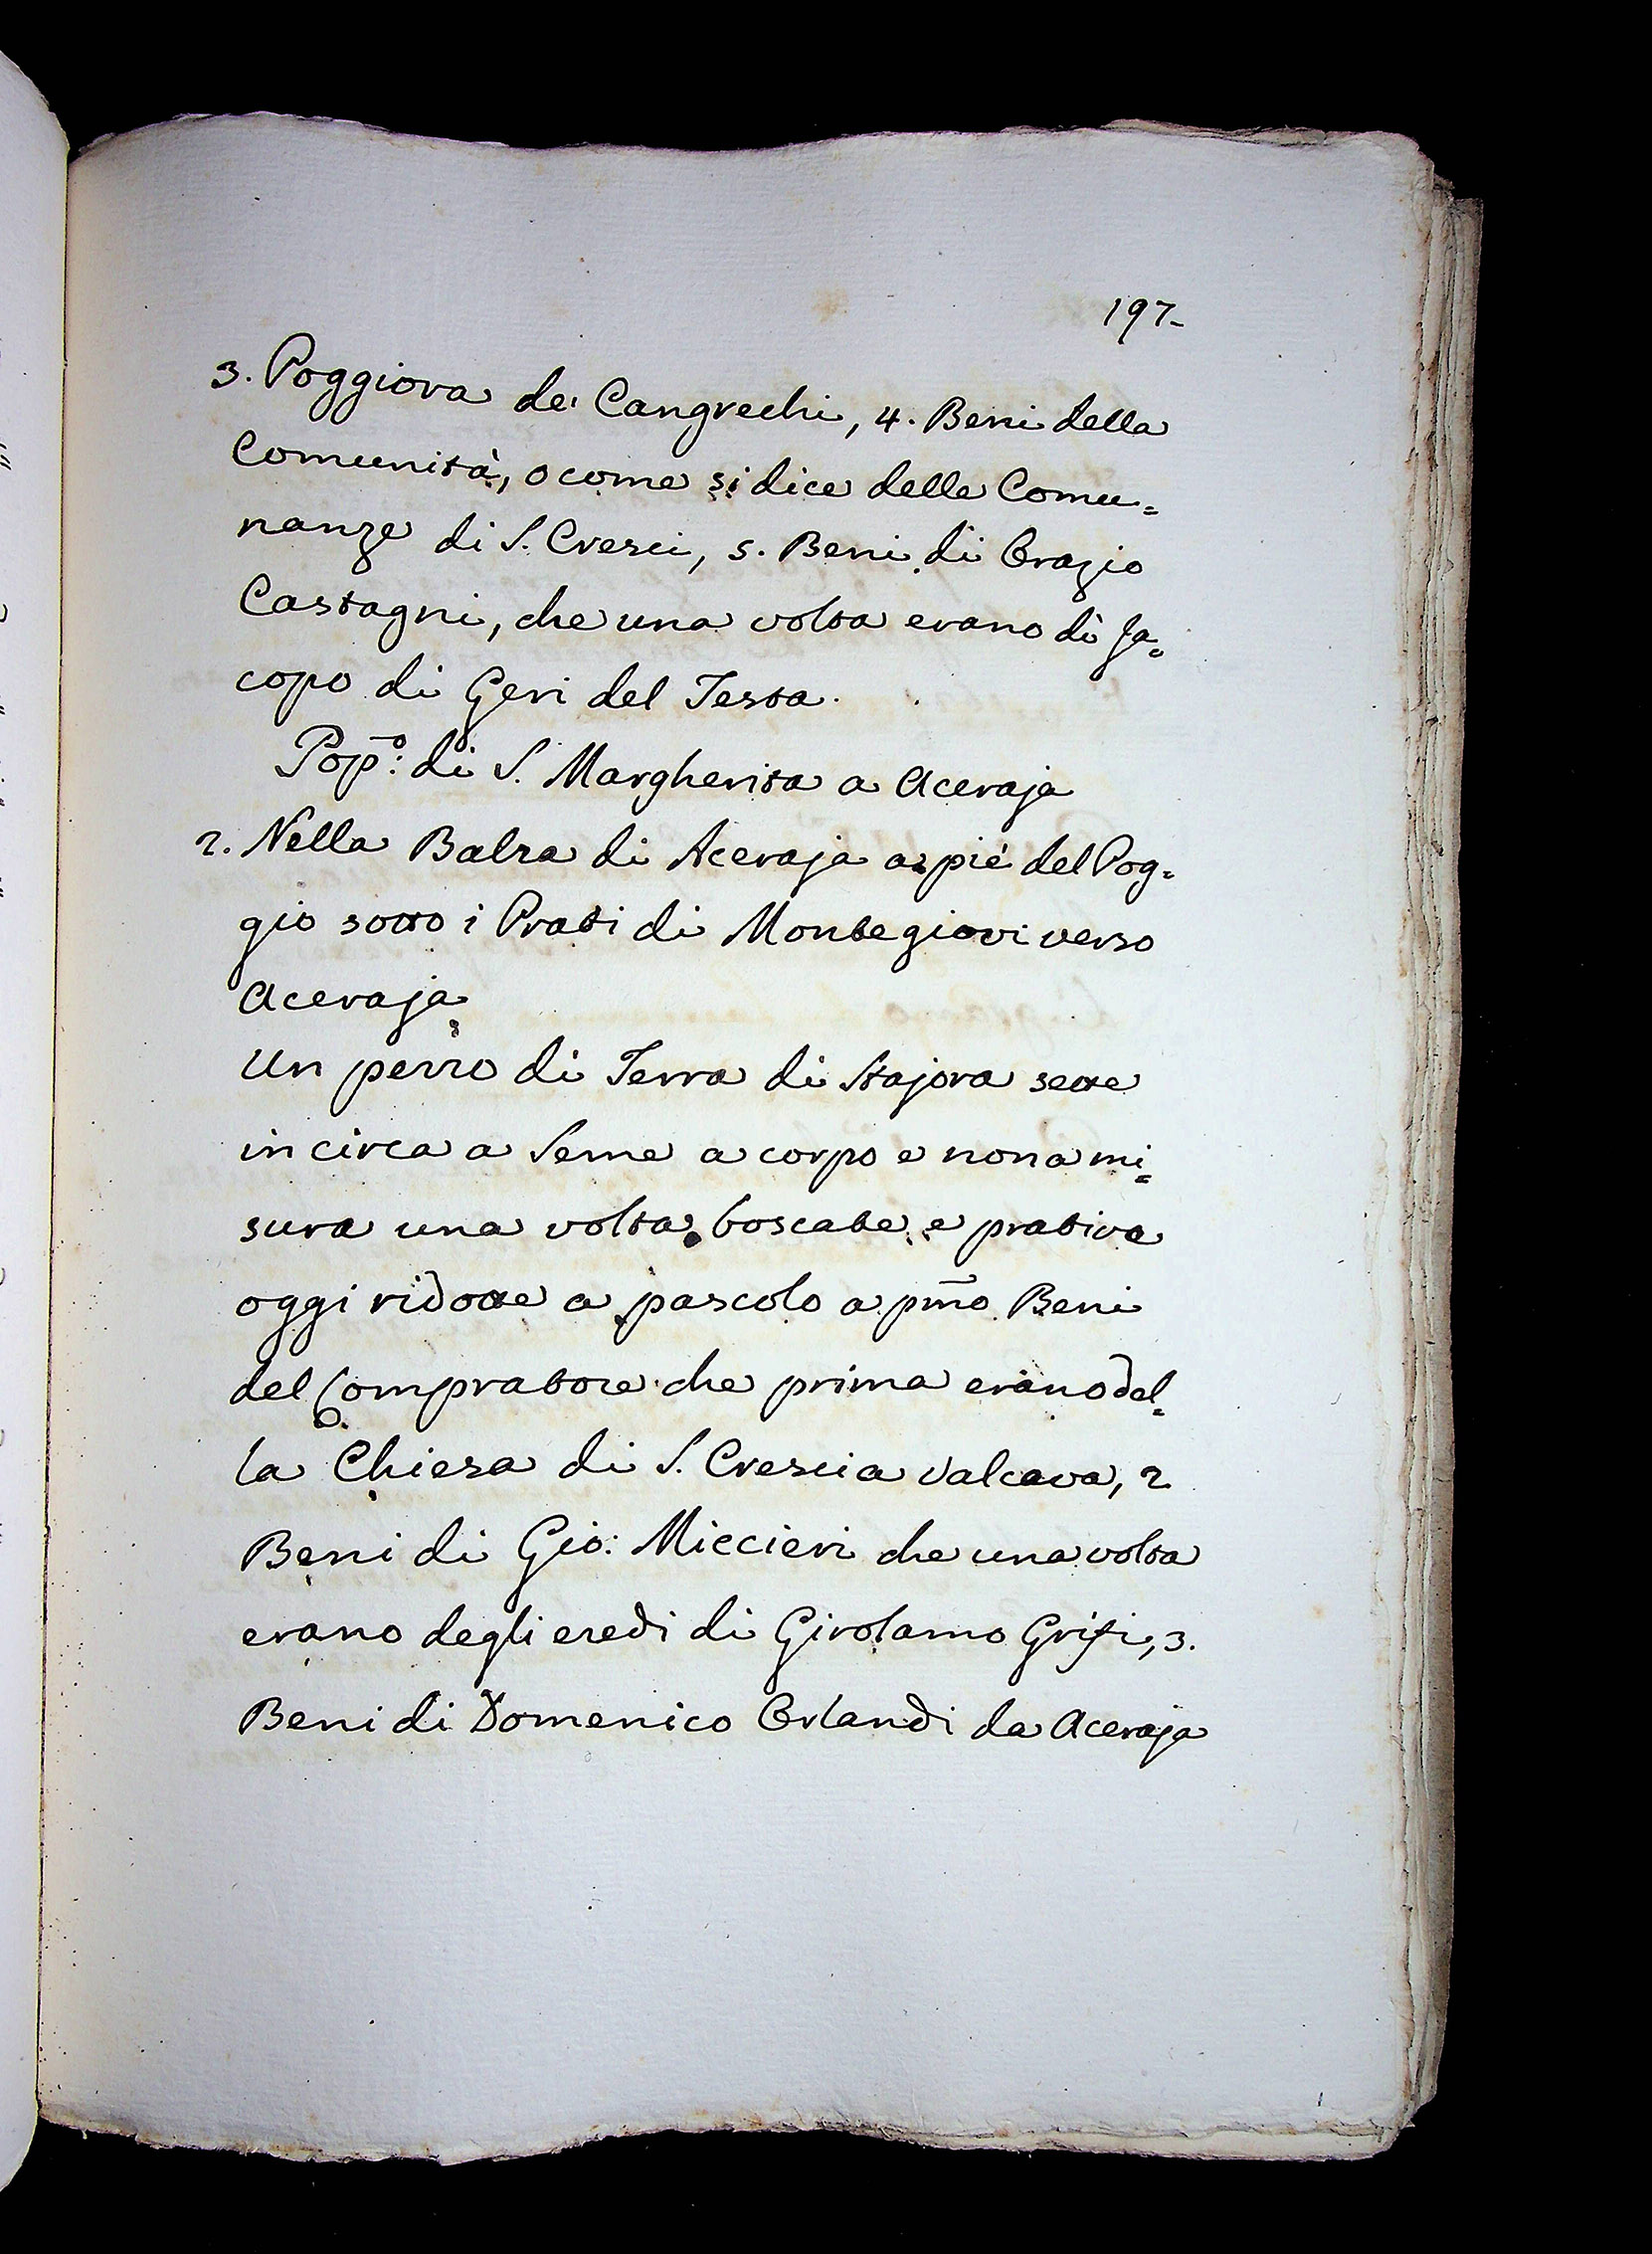 197-
3. Poggiora de' Cangrechi, 4. Beni della
Comunità, o come si dice delle Comu=
nanze di S. Cresci, 5. Beni di Orazio
Castagni, che una volta erano di Ja=
copo di Geri del Testa.
Pop.o: di S. Margherita a Aceraja
2. Nella Balza di Aceraja a piè del Pog=
gio sotto i Prati di Montegiovi verso
Aceraja
Un pezzo di Terra di Stajora sette
in circa a Seme a corpo e non a mi=
sura una volta boscate e prative
oggi ridotte a pascolo a pmo Beni
del Compratore che prima erano del=
la Chiesa di S. Cresci a Valcava, 2
Beni di Gio: Miccieri che una volta
erano degli eredi di Girolamo Grifi, 3.
Beni di Domenico Orlandi da Aceraja